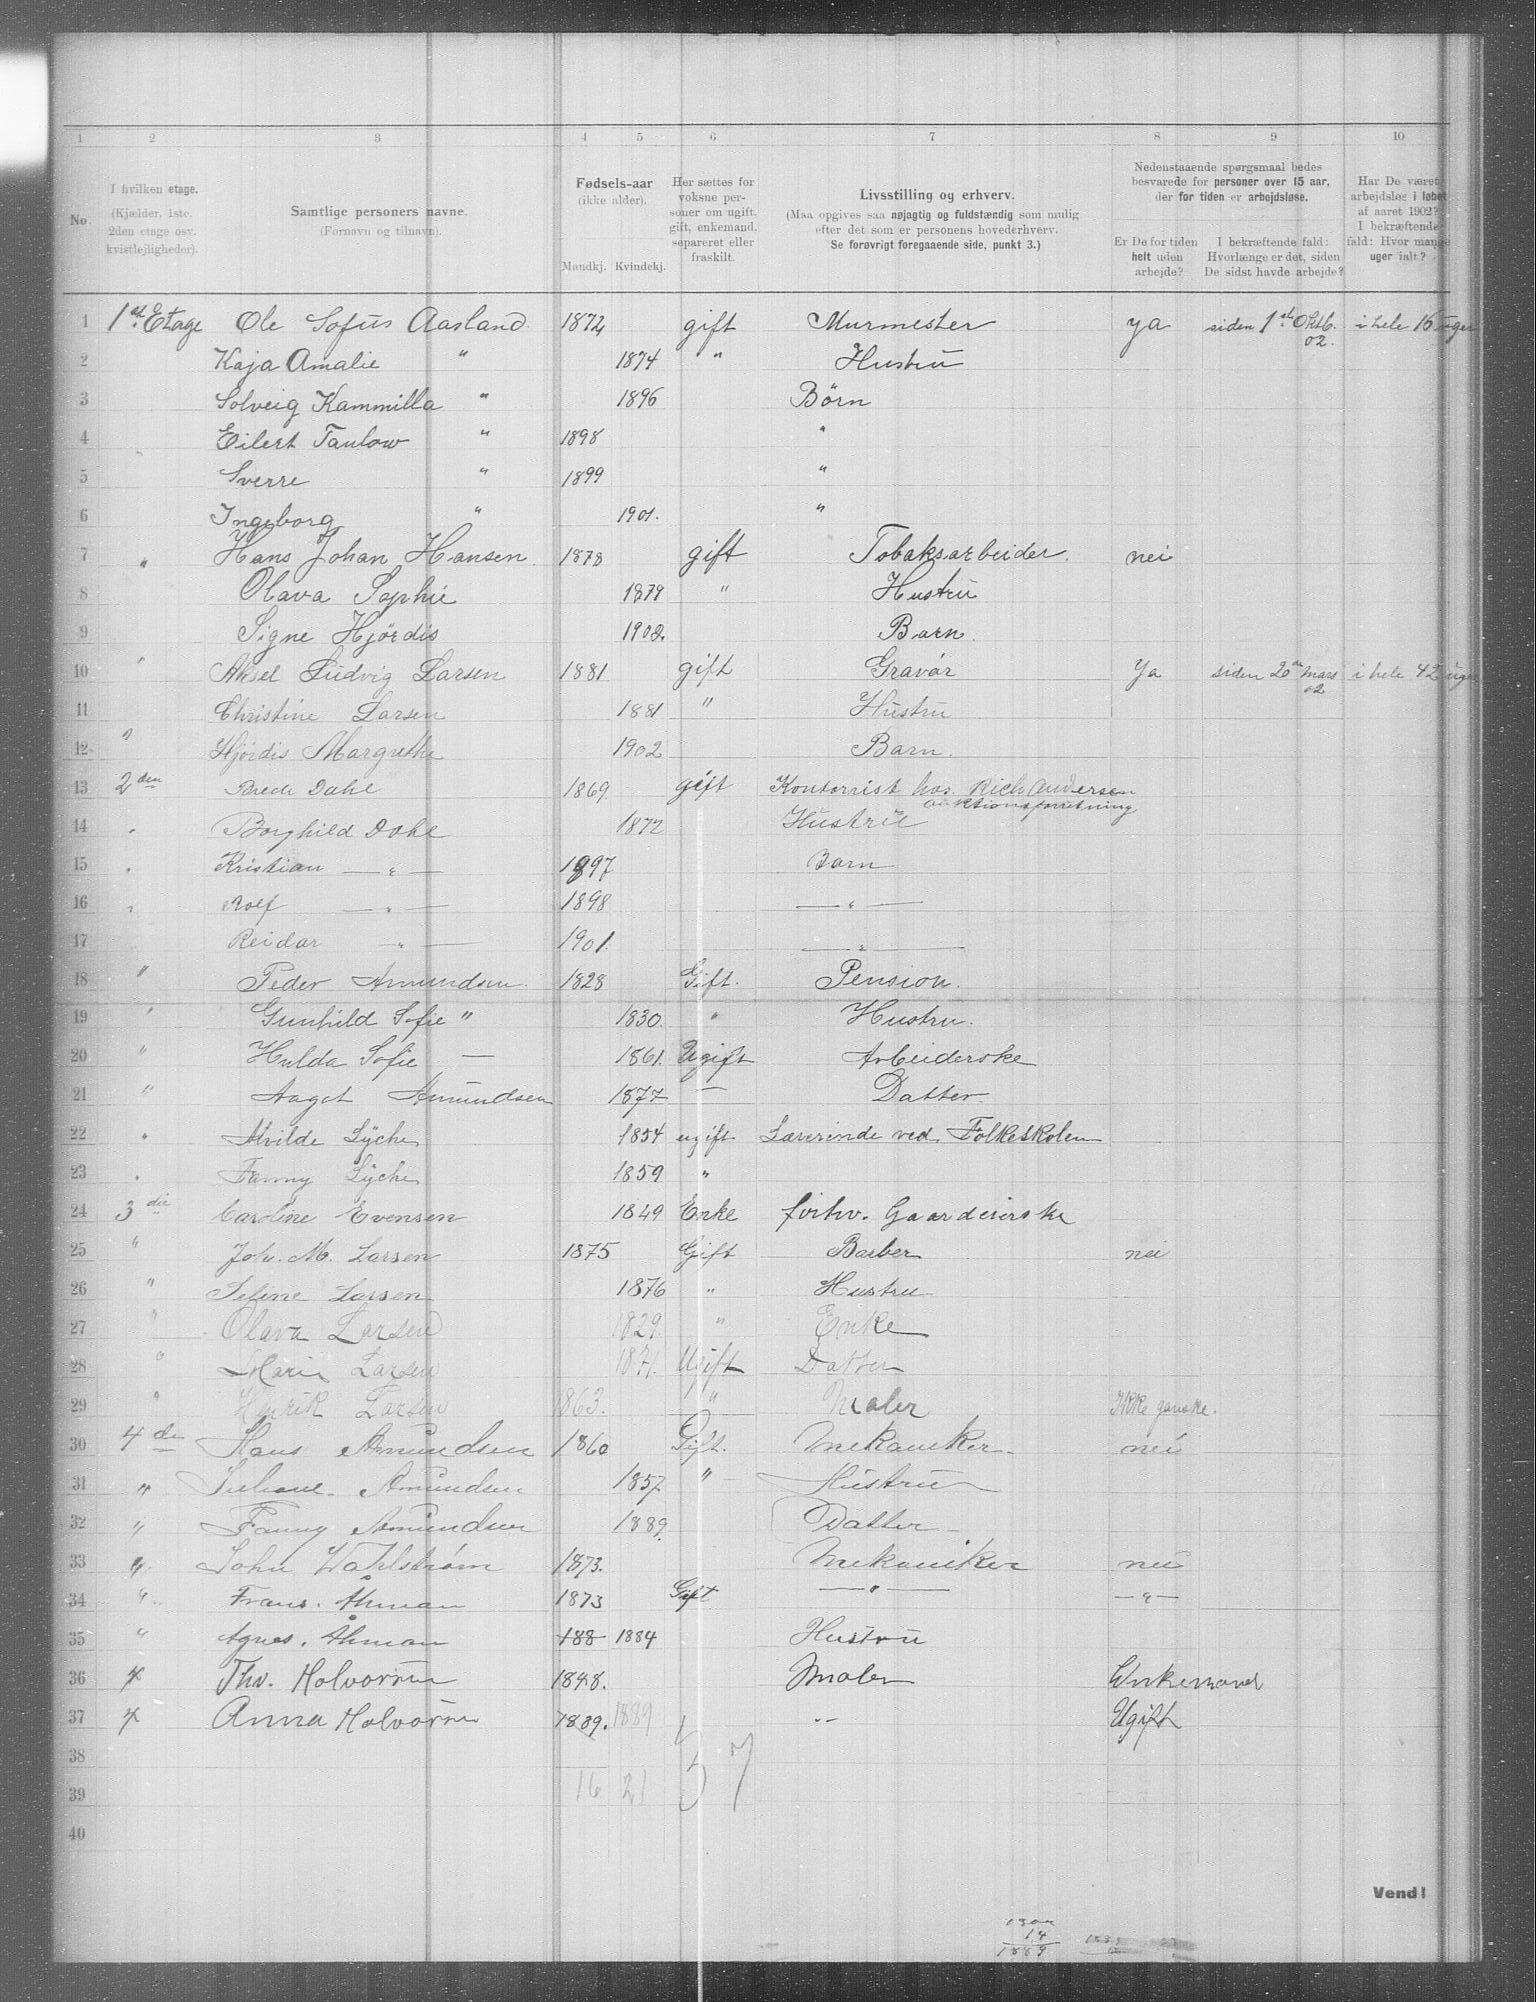 1 2 3 4 5 6 7 8 9 10
No.
I hvilken etage.
(Kjælder, 1ste.
2den etage osv.
kvistleiligheder).
Samtlige personers navne.
(Fornavn og tilnavn).
Fødsels-aar
(ikke alder).
Mandkj. Kvindekj.
Her sættes for
voksne per-
soner om ugift,
gift, enkemand,
separeret eller
fraskilt.
Livsstilling og erhverv.
(Maa opgives saa nøjagtig og fuldstændig som mulig
efter det som er personens hovederhverv.
Se forøvrigt foregaaende side, punkt 3.)
Nedenstaaende spørgsmaal bedes
besvarede for personer over 15 aar,
der for tiden er arbejdsløse.
Er De for tiden
helt uden
arbejde?
I bekræftende fald:
Hvorlænge er det, siden
De sidst havde arbejde?
Har De været
arbejdsløs i løbet
af aaret 1902?
I bekræftende
fald: Hvor mange
uger ialt?
1 1st Etage Ole Sofus Aasland 1872 gift Murmester ya siden 1st Oktb. 02. i hele 16 uger
2 Kaja Amalie " 1874 " Hustru
3 Solveig Kammilla " 1896 Børn
4 Eilert Taulow " 1898 "
5 Sverre " 1899 "
6 Ingeborg " 1901. "
7 " Hans Johan Hansen. 1878 gift Tobaksarbeider. nei
8 Olava Sophie 1879 " Hustru
9 Signe Hjördis 1902. Barn.
10 " Aksel Ludvig Larsen 1881 gift Gravør ya siden 20de mars 02 i hele 42 uger
11 Christine Larsen 1881 " Hustru
12 " Hjördis Margrethe 1902 Barn.
13 2den Brede Dahl 1869 gift Kontorrist hos Rich Andersen
auktionsforretning
14 " Borghild Dahl 1872 Hustru
15 " Kristian — " — 1897 Barn
16 " Rolf — " — 1898 — " —
17 Reidar — " — 1901 — " —
18 " Peder Amundsen. 1828 Gift. Pension.
19 " Gunhild Sofie " 1830 " Hustru.
20 " Hulda Sofie — 1861. Ugift Arbeiderske
21 " Aagot Amundsen 1877 — Datter.
22 " Alvilde Lÿche 1854 ugift Lærerinde ved Folkeskolen
23 " Fanny Lÿche 1859 "
24 3die Caroline Evensen 1849 Enke forhv. Gaardeierske
25 " Joh. M. Larsen 1875 Gift Barber nei
26 " Seline Larsen 1876 " Hustru
27 " Olava Larsen 1829. " Enke
28 " Marie Larsen 1871. Ugift Datter
29 " Henrik Larsen 1863. " Maler Ikke ganske.
30 4de Hans Amundsen 1860 Gift. Mekaniker. nei
31 " Amundsen 1857 " Hustru
32 " Fanny Amundsen 1889 Datter
33 " John Wahlstrøm 1873. Mekaniker nei
34 " Frans. Åhman 1873 Gift — " — — " —
35 " Agnes. Åhman 188 1884 Hustru
36 4 Thv. Halvorsen 1848. Maler Enkemand
37 4 Anna Halvorsen 1889. 1889 " Ugift
38
39 16 21 37
40
Vend!
14
1889